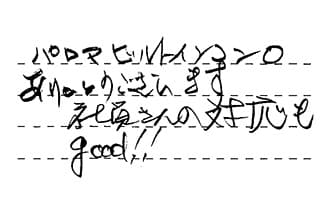 パロマビルトインコンロ
ありがとうございます
さんの対応も
good!!